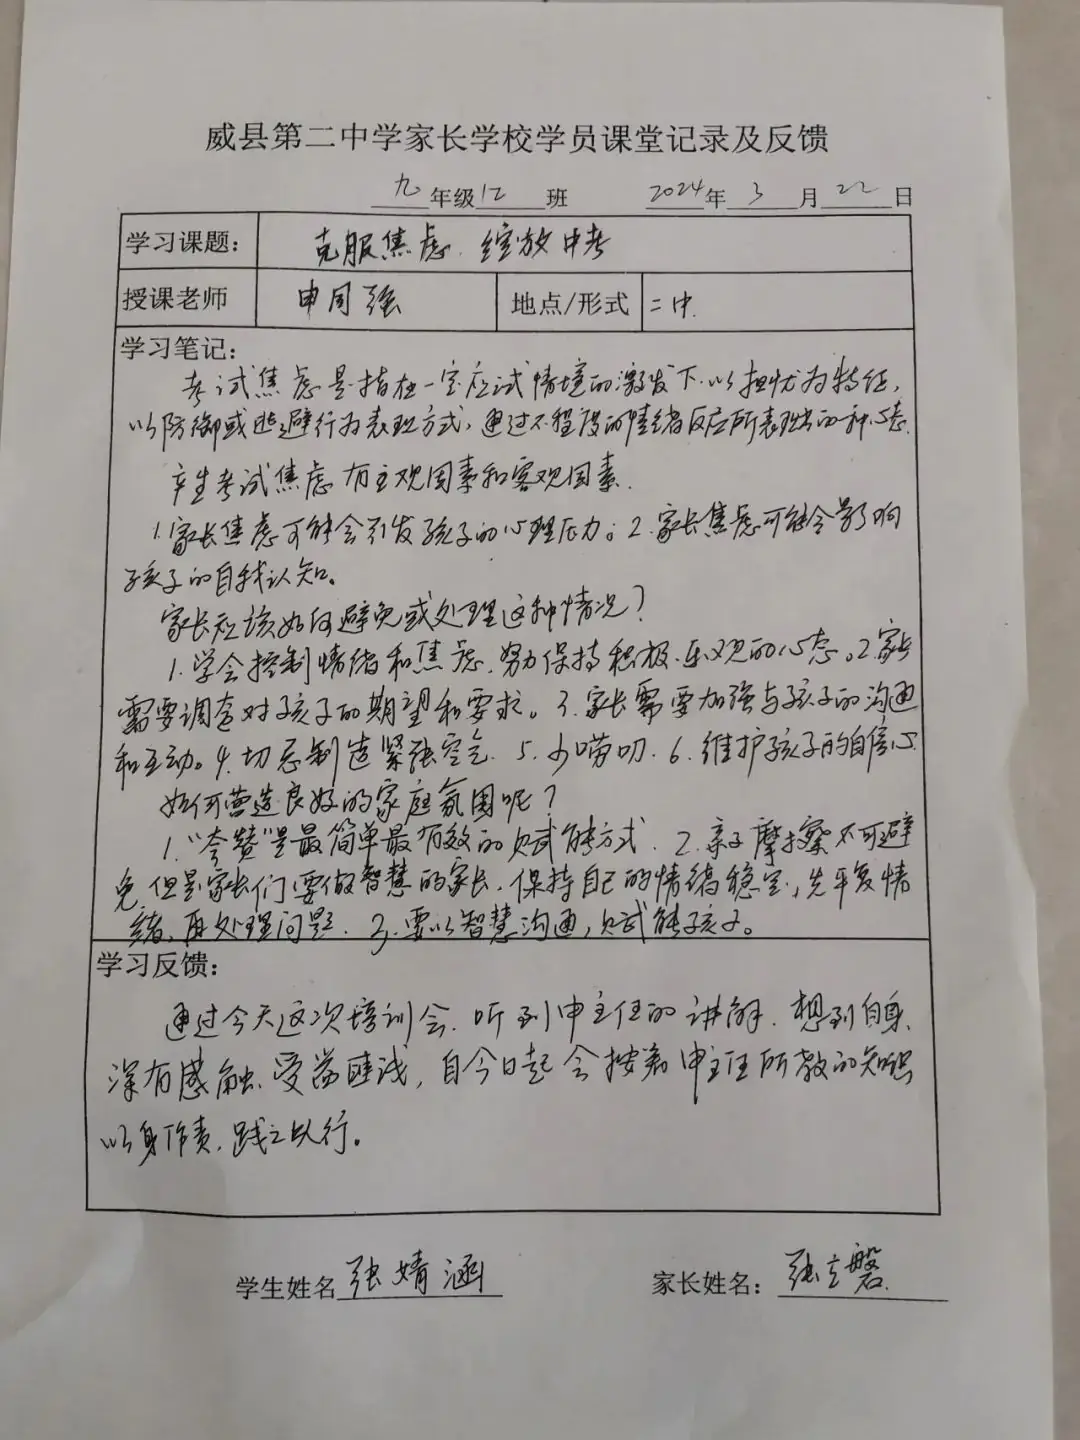 威县第二中学家长学校学员课堂记录及反馈
九年级12班 2024年3月22日
学习课题: 克服焦虑.绽放中考
授课老师 申同强 地点/形式 二中.
学习笔记:
考试焦虑是指在一定应试情境的激发下.以担忧为特征,
以防御或逃避行为表现方式,通过不程度的情绪反应所表现出的一种心态.
产生考试焦虑有主观因素和客观因素.
1.家长焦虑可能会引发孩子的心理压力。2.家长焦虑可能会影响
孩子的自我认知。
家长应该如何避免或处理这种情况?
1.学会控制情绪和焦虑.努力保持积极.乐观的心态。2.家长
需要调查对孩子的期望和要求。3.家长需要加强与孩子的沟通
和互动。4.切忌制造紧张空气.5.少唠叨.6.维护孩子的自信心.
如何营造良好的家庭氛围呢?
1."夸赞"是最简单最有效的赋能方式.2.亲子摩擦不可避
免但是家长们要做智慧的家长.保持自己的情绪稳定,先平复情
绪,再处理问题.3.要以智慧沟通,赋能孩子。
学习反馈:
通过今天这次培训会.听到申主任的讲解.想到自身.
深有感触.受益匪浅,自今日起会按着申主任所教的知识
以身作责.践之以行。
学生姓名 张婧涵 家长姓名: 张立磐.